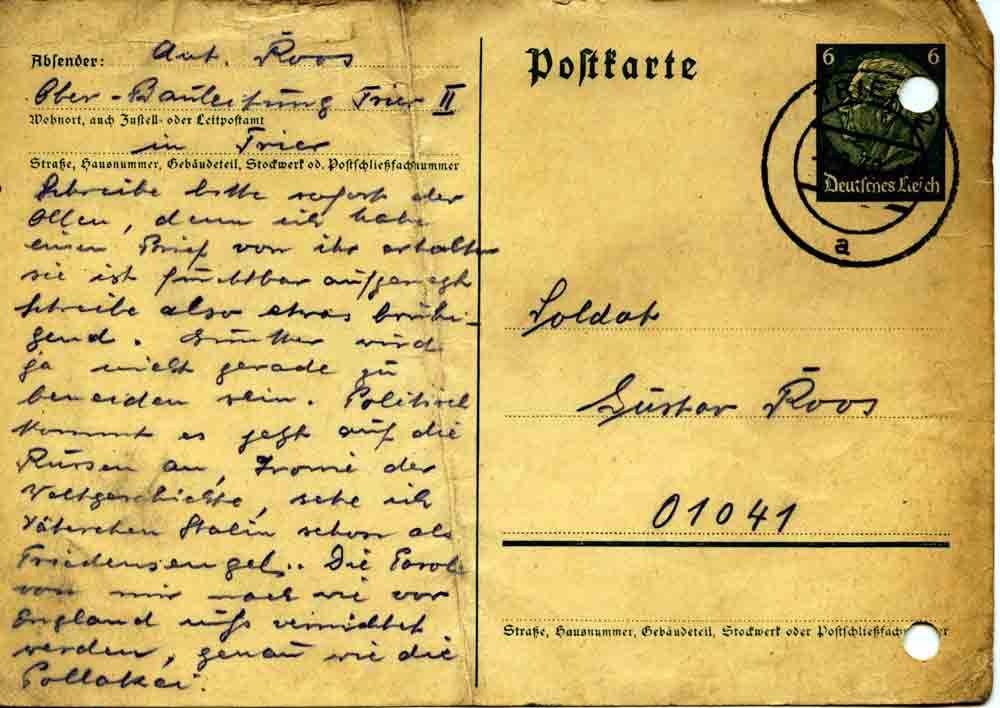 Absender: Ant. Roos
Ober-Bauleitung Trier II
Wohnort, auch Zustell- oder Leitpostamt
in Trier
Straße, Hausnummer, Gebäudeteil, Stockwerk od. Postschließfachnummer
Schreibe bitte sofort der
Ollen, denn ich habe
einen Brief von ihr erhalten
sie ist furchtbar aufgeregt
schreibe also etwas bruhi-
gend. Günther wird
ja nicht gerade zu
beneiden sein. Politisch
kommt es jetzt auf die
Russen an, Ironie der
Weltgeschichte, sehe ich
Väterchen Stalin schon als
Friedensengel.. Die Parole
von mir nach wie vor
England muss vernichtet
werden, genau wie die
Pollakei.
Postkarte
6 6
Deutsches Reich
a
Soldat
Gustav Roos
01041
Straße, Hausnummer, Gebäudeteil, Stockwerk oder Postschließfachnummer